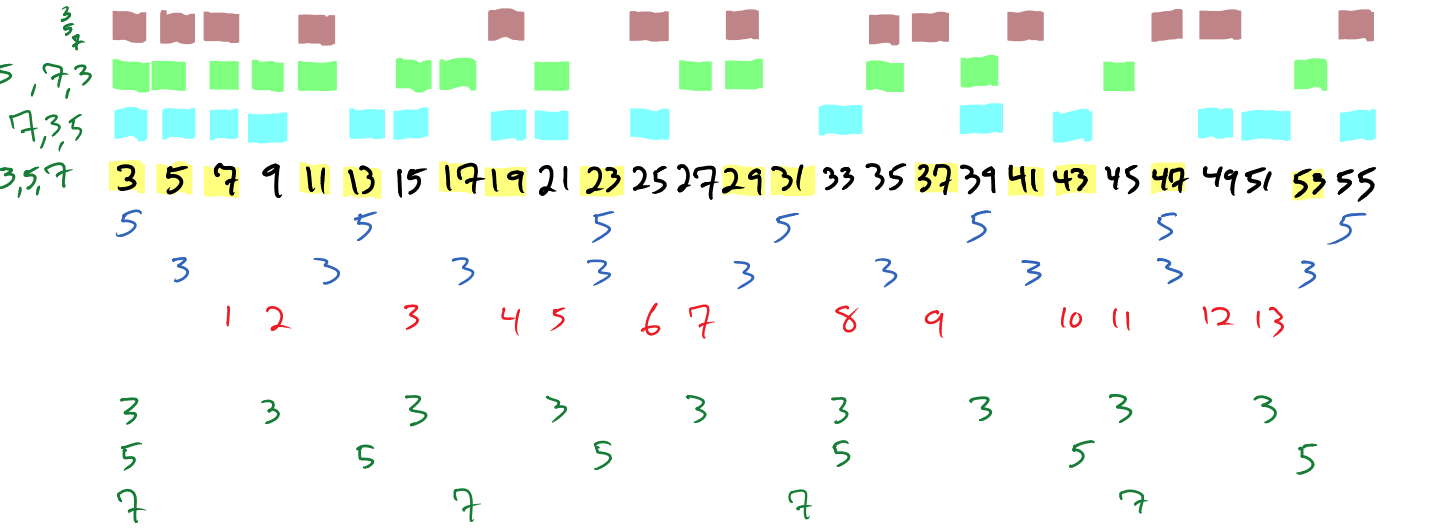 3
5
7
5 , 7, 3
7, 3, 5
3, 5, 7 3 5 7 9 11 13 15 17 19 21 23 25 27 29 31 33 35 37 39 41 43 45 47 49 51 53 55
5 5 5 5 5 5 5
3 3 3 3 3 3 3 3 3
1 2 3 4 5 6 7 8 9 10 11 12 13
3 3 3 3 3 3 3 3 3
5 5 5 5 5 5
7 7 7 7